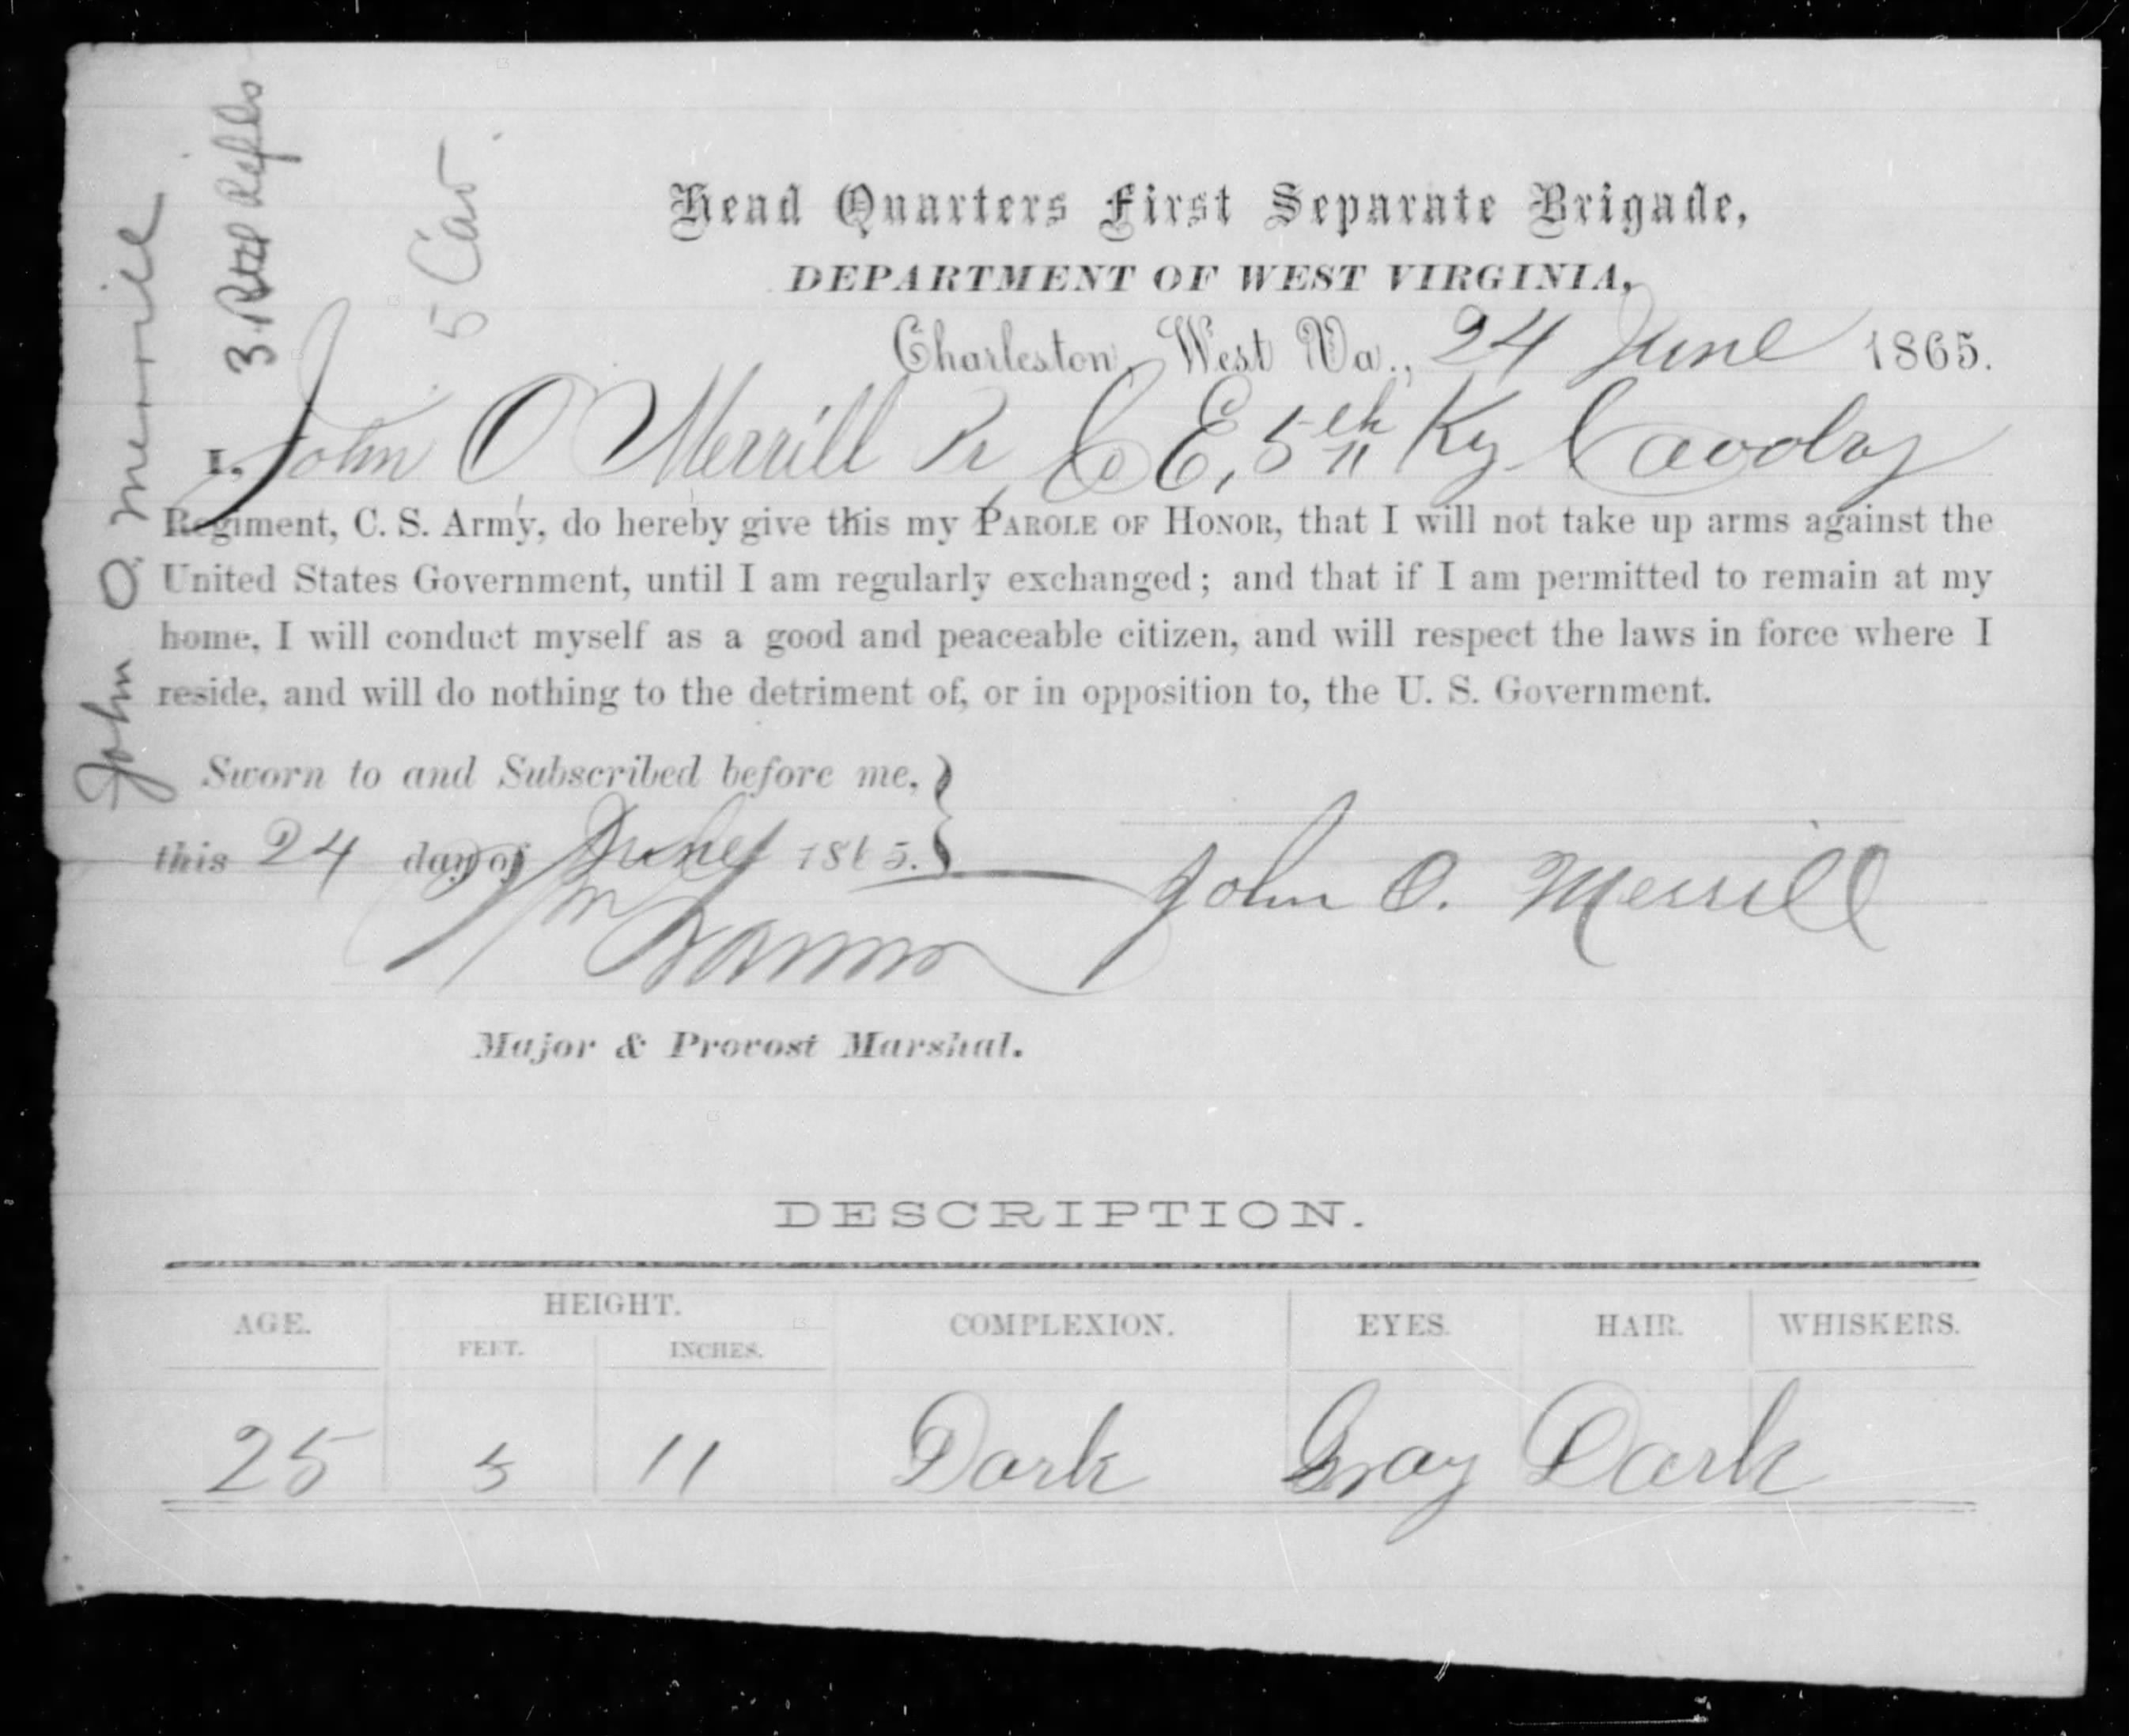 Head Quarters First Separate Brigade,
DEPARTMENT OF WEST VIRGINIA,
Charleston, West Va., 24 June 1865.
I, John O Merrill Co E, 5th Ky Cavalry
Regiment, C. S. Army, do hereby give this my PAROLE OF HONOR, that I will not take up arms against the
United States Government, until I am regularly exchanged; and that if I am permitted to remain at my
home, I will conduct myself as a good and peaceable citizen, and will respect the laws in force where I
reside, and will do nothing to the detriment of, or in opposition to, the U. S. Government.
Sworn to and Subscribed before me,
this 24 day of June 1865.
John O. Merrill
Major & Provost Marshal.
John O. Merrill
3
5 Cav
DESCRIPTION.
AGE. HEIGHT. COMPLEXION. EYES. HAIR. WHISKERS.
FEET. INCHES.
25 5 11 Dark Gray Dark